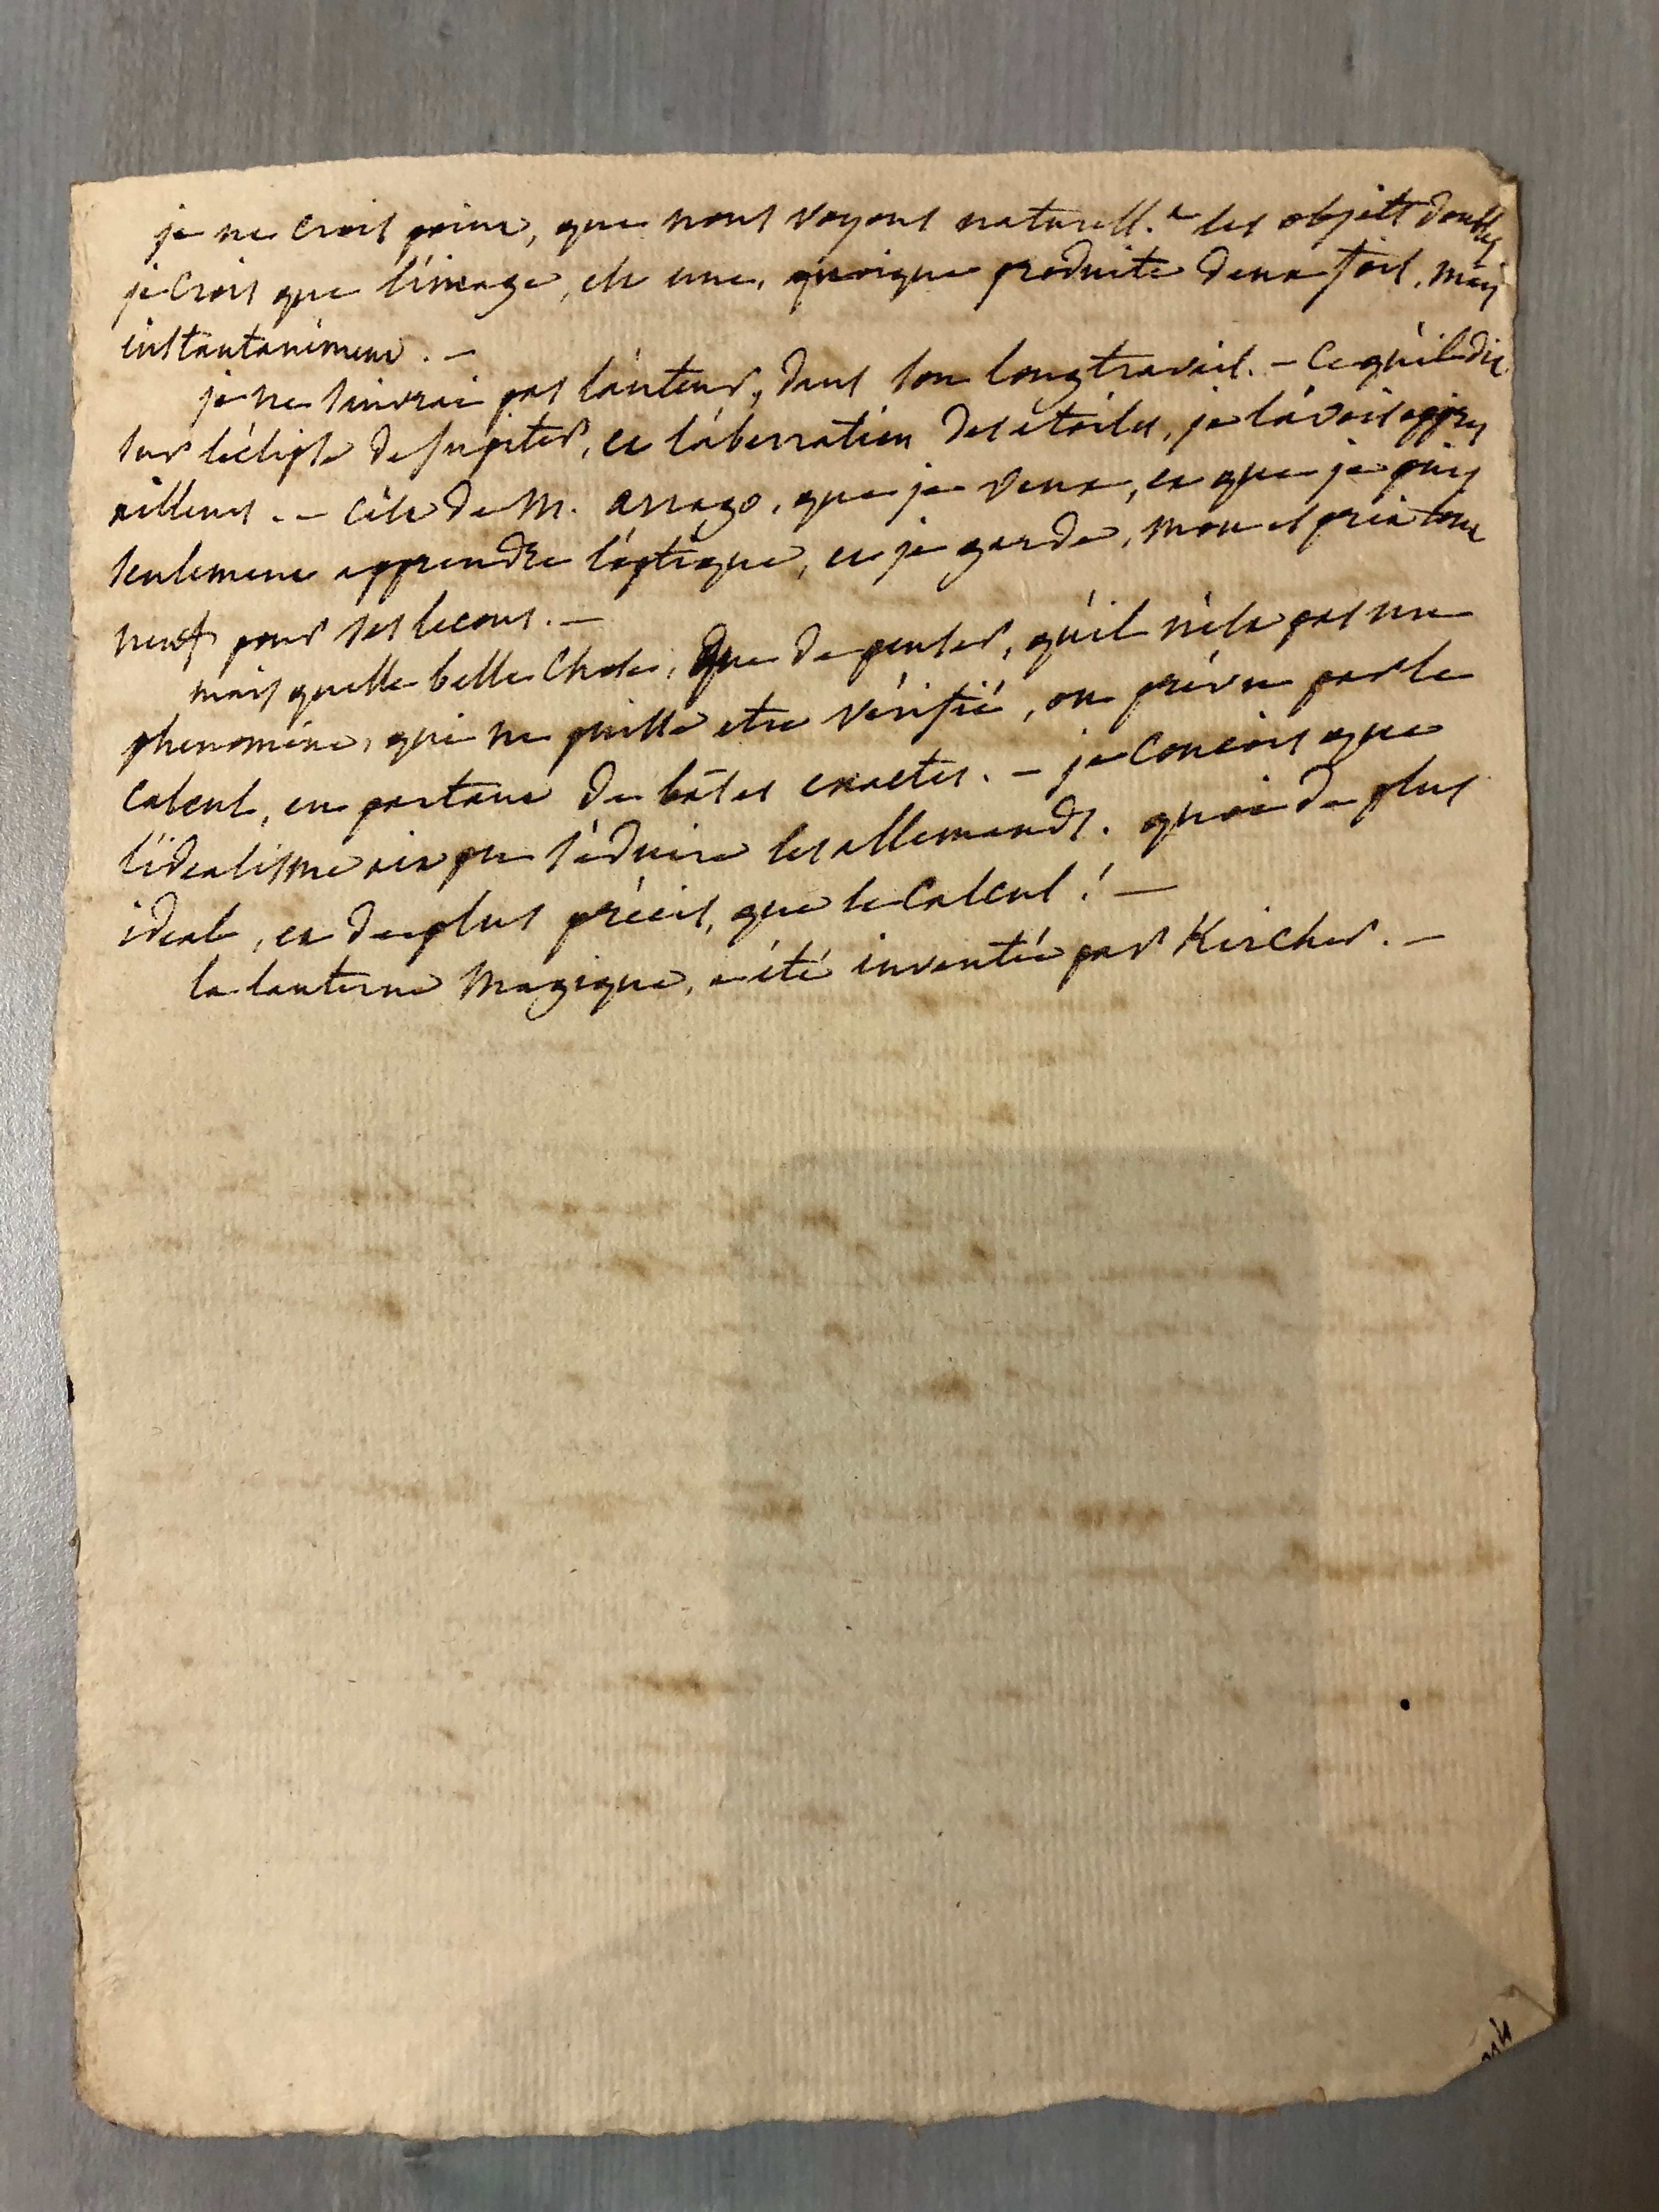 je ne crois point, que nous voyons naturell.t les objets doubles
je crois que l'image, est une, quoique produite deux fois, mais
instantanément. —
je ne suivrai pas l'auteur, dans son long travail. — Ce qu'il dit
sur l'éclipse de Jupiter, et l'aberration des étoiles, je l'avois appris
ailleurs. — C'est de M. arrago, que je veux, et que je puis
seulement apprendre l'optique, et je garde, mon esprit tout
neuf pour ses lecons. —
mais quelle belle chose, que de penser, qu'il n'est pas un
phenomène, qui ne puisse etre vérifié, ou prévu par le
calcul, en partant de bases exactes. — je concois que
l'idealisme ait pu séduire les allemands. quoi de plus
ideal, et de plus précis, que le calcul ! —
la lanterne magique, a été inventée par Kircher. —